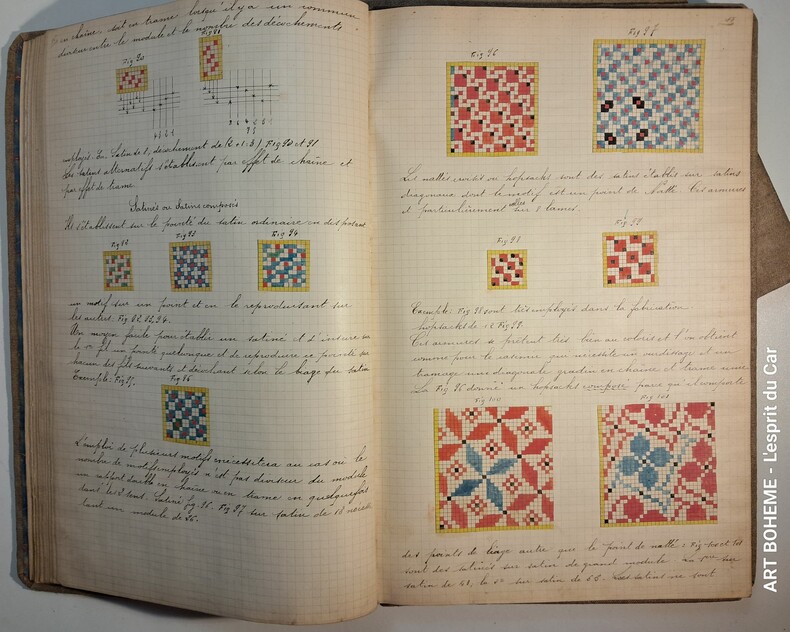 en chaîne soit en trame lorsqu'il y a un commun
diviseur entre le module et le nombre des décochements
Fig 90
Fig 91
employés. Ex. Satin de décochement de Fig 90 et 91
Les satins alternatifs s'établissent par effet de chaîne et
par effet de trame
Satinés ou Satins composés
Ils s'établissent sur le pointé du satin ordinaire en
Fig 93
Fig 94
un motif sur un point et en le reproduisant sur
les autres. Fig 92.93.94.
Un moyen facile pour établir un satiné et d'insérer sur
le 1er fil un pointé quelconque et de reproduire ce pointé sur
chacun des fils suivants et décochant selon le biage du satin
Exemple: Fig 95.
L'emploi de plusieurs motifs nécessitera au cas où le
nombre de motifs employés n'est pas diviseur du module
un rapport double en chaîne ou en trame ou quelquefois
dans les 2 sens. Satiné fig. 96. Fig 97 sur satin de 18
sur un module de 36.
Fig 96
Fig 97
Les nattés ou hopsacks sont des satins établis sur satins
diagonaux dont le motif est un point de Natté. Ces armures
et particulièrement celles sur 8 lames.
Fig 98
Fig 99
Exemple: Fig 98 sont très employés dans la fabrication
hopsacks de 12 Fig 99.
Ces armures se prêtent très bien au coloris et l'on obtient
comme pour le casimir que nécessite un ourdissage et un
tramage une diagonale gradin en chaîne et trame
La Fig 96 donne un hopsacks composé parce qu'il comporte
Fig 100
Fig 101
des points de biage autre que le point de natté: Fig 100 et 101
sont des satinés sur satin de grand module. sur
satin de 48, le 2e sur satin de 65. satins ne sont
ART BOHEME - L'esprit du Car